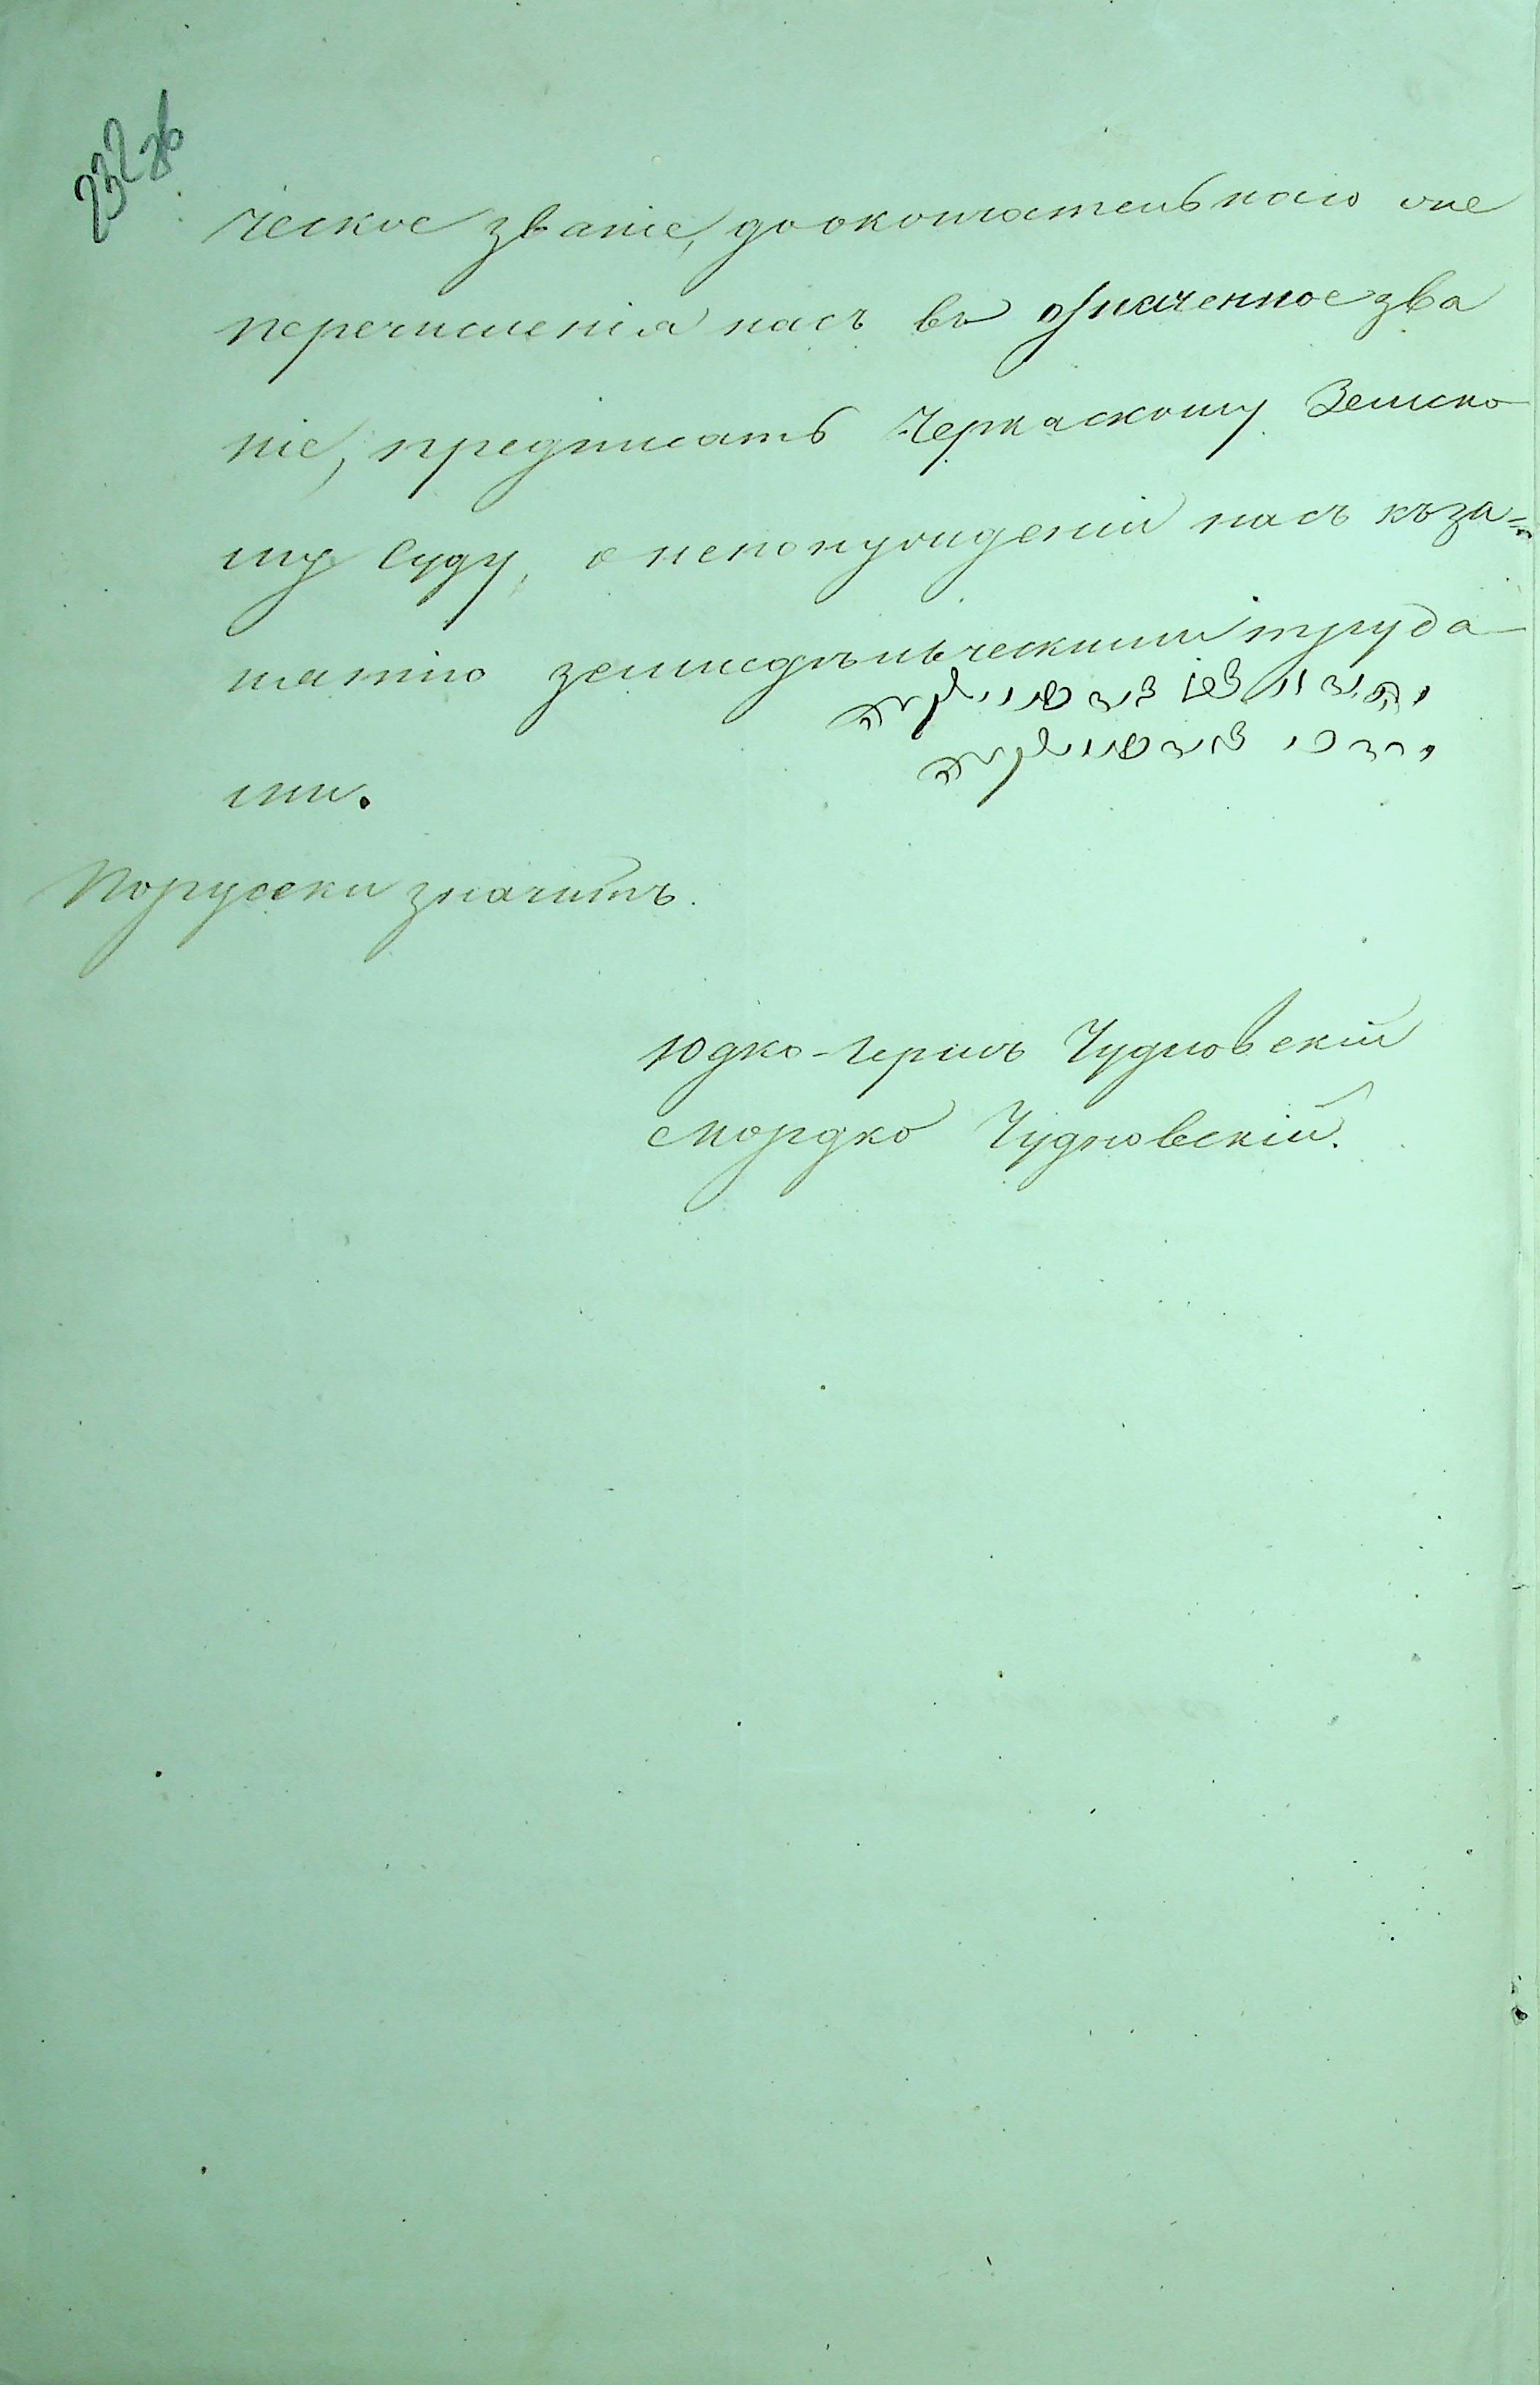 232 об
ческое званіе, до окончательнаго one
перечисленія насъ въ означенное зва
ніе, предписать Черкаскому Земско
му Суду, о непонужденіи насъ къ за=
нятію земледѣльческими труда
ми.
По русски значитъ.
Юдко-Герш Чудновскій
Мордко Чудновскій.